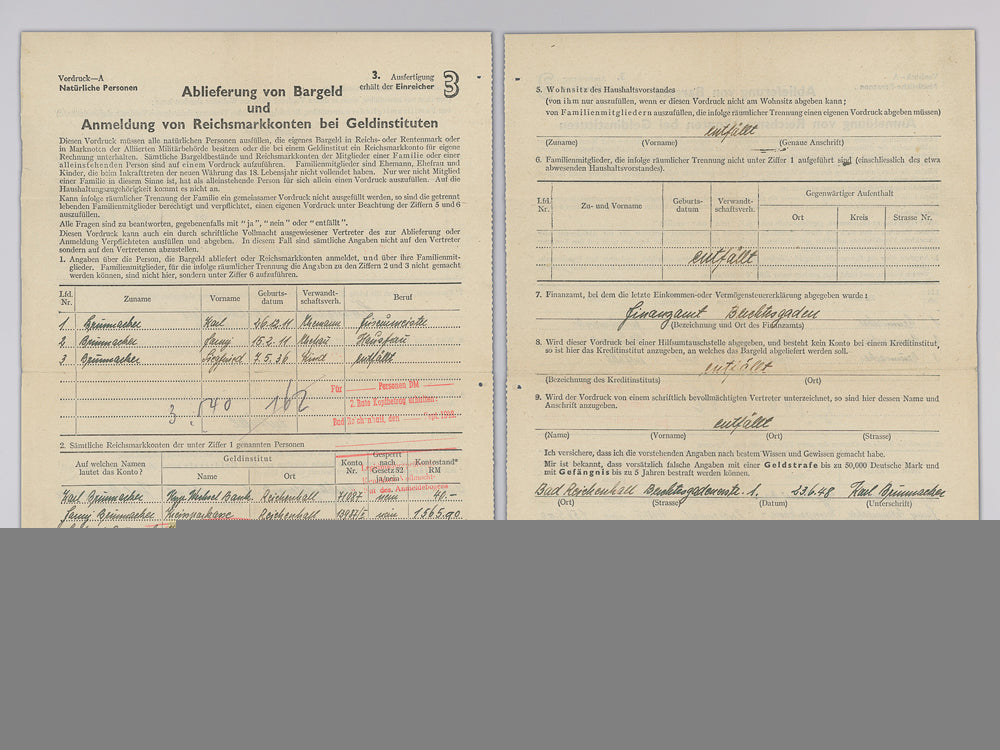 Vordruck—A
Natürliche Personen
3. Ausfertigung
erhält der Einreicher
3
Ablieferung von Bargeld
und
Anmeldung von Reichsmarkkonten bei Geldinstituten
Diesen Vordruck müssen alle natürlichen Personen ausfüllen, die eigenes Bargeld in Reichs- oder Rentenmark oder
in Marknoten der Alliierten Militärbehörde besitzen oder die bei einem Geldinstitut ein Reichsmarkkonto für eigene
Rechnung unterhalten. Sämtliche Bargeldbestände und Reichsmarkkonten der Mitglieder einer Familie oder einer
alleinstehenden Person sind auf einem Vordruck aufzuführen. Familienmitglieder sind Ehemann, Ehefrau und
Kinder, die beim Inkrafttreten der neuen Währung das 18. Lebensjahr nicht vollendet haben. Nur wer nicht Mitglied
einer Familie in diesem Sinne ist, hat als alleinstehende Person für sich allein einen Vordruck auszufüllen. Auf die
Haushaltungszugehörigkeit kommt es nicht an.
Kann infolge räumlicher Trennung der Familie ein gemeinsamer Vordruck nicht ausgefüllt werden, so sind die getrennt
lebenden Familienmitglieder berechtigt und verpflichtet, einen eigenen Vordruck unter Beachtung der Ziffern 5 und 6
auszufüllen.
Alle Fragen sind zu beantworten, gegebenenfalls mit "ja", "nein" oder "entfällt".
Diesen Vordruck kann auch ein durch schriftliche Vollmacht ausgewiesener Vertreter des zur Ablieferung oder
Anmeldung Verpflichteten ausfüllen und abgeben. In diesem Fall sind sämtliche Angaben nicht auf den Vertreter
sondern auf den Vertretenen abzustellen.
1. Angaben über die Person, die Bargeld abliefert oder Reichsmarkkonten anmeldet, und über ihre Familienmit-
glieder. Familienmitglieder, für die infolge räumlicher Trennung die Angaben zu den Ziffern 2 und 3 nicht gemacht
werden können, sind nicht hier, sondern unter Ziffer 6 aufzuführen.
Lfd. Nr. Zuname Vorname Geburts-datum Verwandt-schaftsverh. Beruf
1 Brümmacher Karl 26.12.11 Ehemann
2 Brümmacher Fanny 15.2.11 Ehefrau Hausfrau
3 Brümmacher Siegfried 7.5.36 Kind entfällt
3 . 40 162
Für Personen DM
2. Rate Kopfbetrag erhalten.
Bad Reichenhall, den Sept. 1948.
2. Sämtliche Reichsmarkkonten der unter Ziffer 1 genannten Personen
Auf welchen Namen lautet das Konto? Geldinstitut Name Ort Konto Nr. Gesperrt nach Gesetz 52 ja/nein Kontostand* RM
Karl Brümmacher Wechsel Bank Reichenhall 71087 nein 40.—
Fanny Brümmacher Reichenhall nein 1565.90
5. Wohnsitz des Haushaltsvorstandes
(von ihm nur auszufüllen, wenn er diesen Vordruck nicht am Wohnsitz abgeben kann;
von Familienmitgliedern auszufüllen, die infolge räumlicher Trennung einen eigenen Vordruck abgeben müssen)
entfällt
(Zuname) (Vorname) (Genaue Anschrift)
6. Familienmitglieder, die infolge räumlicher Trennung nicht unter Ziffer 1 aufgeführt sind (einschliesslich des etwa
abwesenden Haushaltsvorstandes).
Lfd. Nr. Zu- und Vorname Geburts-datum Verwandt-schaftsverh. Gegenwärtiger Aufenthalt
Ort Kreis Strasse Nr.
entfällt
7. Finanzamt, bei dem die letzte Einkommen-oder Vermögensteuererklärung abgegeben wurde:
Finanzamt Berchtesgaden
(Bezeichnung und Ort des Finanzamts)
8. Wird dieser Vordruck bei einer Hilfsumtauschstelle abgegeben, und besteht kein Konto bei einem Kreditinstitut,
so ist hier das Kreditinstitut anzugeben, an welches das Bargeld abgeliefert werden soll.
entfällt
(Bezeichnung des Kreditinstituts) (Ort)
9. Wird der Vordruck von einem schriftlich bevollmächtigten Vertreter unterzeichnet, so sind hier dessen Name und
Anschrift anzugeben.
entfällt
(Name) (Vorname) (Ort) (Strasse)
Ich versichere, dass ich die vorstehenden Angaben nach bestem Wissen und Gewissen gemacht habe.
Mir ist bekannt, dass vorsätzlich falsche Angaben mit einer Geldstrafe bis zu 50,000 Deutsche Mark und
mit Gefängnis bis zu 5 Jahren bestraft werden können.
Bad Reichenhall Berchtesgadenerstr. 1. 23.6.48 Karl Brümmacher
(Ort) (Strasse) (Datum) (Unterschrift)